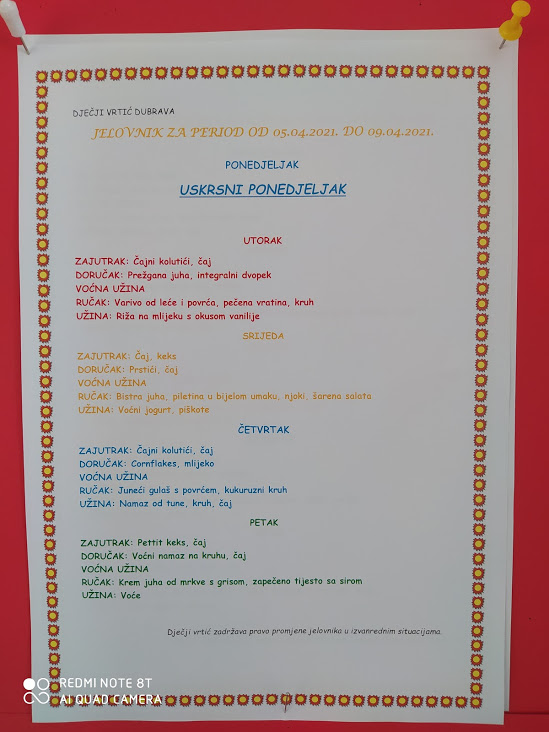 DJEČJI VRTIĆ DUBRAVA
JELOVNIK ZA PERIOD OD 05.04.2021. DO 09.04.2021.
PONEDJELJAK
USKRSNI PONEDJELJAK
UTORAK
ZAJUTRAK: Čajni kolutići, čaj
DORUČAK: Prežgana juha, integralni dvopek
VOĆNA UŽINA
RUČAK: Varivo od leće i povrća, pečena vratina, kruh
UŽINA: Riža na mlijeku s okusom vanilije
SRIJEDA
ZAJUTRAK: Čaj, keks
DORUČAK: Prstići, čaj
VOĆNA UŽINA
RUČAK: Bistra juha, piletina u bijelom umaku, njoki, šarena salata
UŽINA: Voćni jogurt, piškote
ČETVRTAK
ZAJUTRAK: Čajni kolutići, čaj
DORUČAK: Cornflakes, mlijeko
VOĆNA UŽINA
RUČAK: Juneći gulaš s povrćem, kukuruzni kruh
UŽINA: Namaz od tune, kruh, čaj
PETAK
ZAJUTRAK: Pettit keks, čaj
DORUČAK: Voćni namaz na kruhu, čaj
VOĆNA UŽINA
RUČAK: Krem juha od mrkve s grisom, zapečeno tijesto sa sirom
UŽINA: Voće
Dječji vrtić zadržava pravo promjene jelovnika u izvanrednim situacijama.
REDMI NOTE 8T
AI QUAD CAMERA